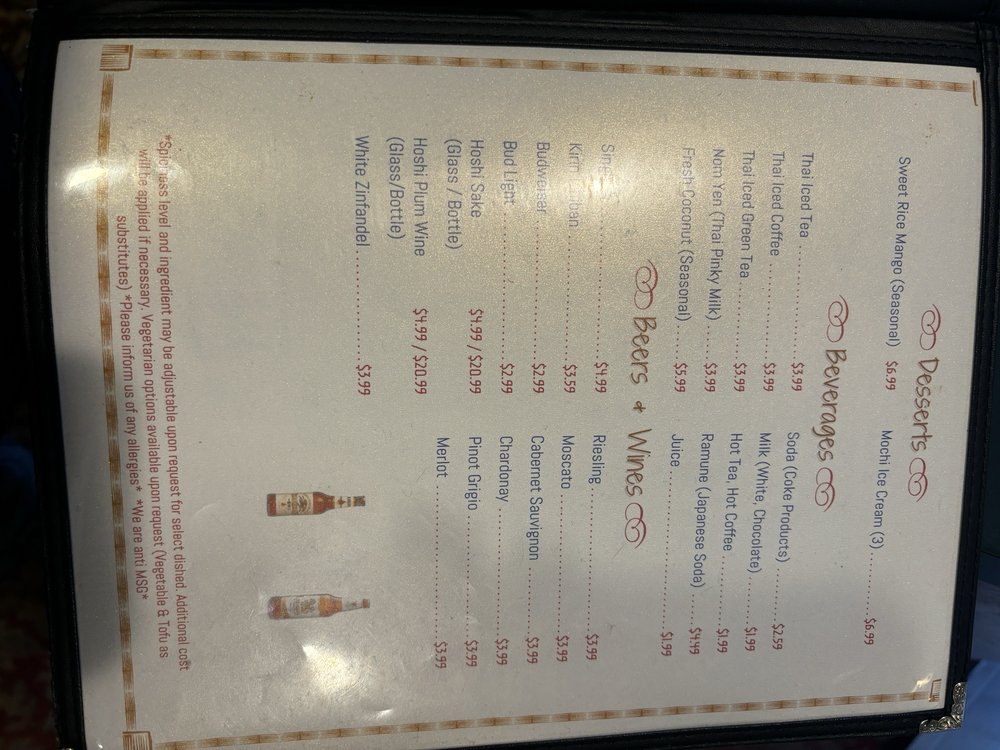 Desserts
Sweet Rice Mango (Seasonal) $6.99
Mochi Ice Cream (3) .......... $6.99
Beverages
Thai Iced Tea ................ $3.99
Thai Iced Coffee ............. $3.99
Thai Iced Green Tea .......... $3.99
Nom Yen (Thai Pinky Milk) .... $3.99
Fresh Coconut (Seasonal) ..... $5.99
Soda (Coke Products) ....... $2.59
Milk (White, Chocolate) .... $1.99
Hot Tea, Hot Coffee ........ $1.99
Ramune (Japanese Soda) ..... $4.49
Juice ...................... $1.99
Beers & Wines
$4.99
Kirin ................ $3.59
Budweiser .................. $2.99
Bud Light .................. $2.99
Hoshi Sake $4.99 / $20.99
(Glass / Bottle)
Hoshi Plum Wine $4.99 / $20.99
(Glass/Bottle)
White Zinfandel ............ $3.99
Riesling ................... $3.99
Moscato .................... $3.99
Cabernet Sauvignon ......... $3.99
Chardonay .................. $3.99
Pinot Grigio ............... $3.99
Merlot ..................... $3.99
*Spiciness level and ingredient may be adjustable upon request for select dished. Additional cost
will be applied if necessary. Vegetarian options available upon request (Vegetable & Tofu as
substitutes) *Please inform us of any allergies* *We are anti MSG*